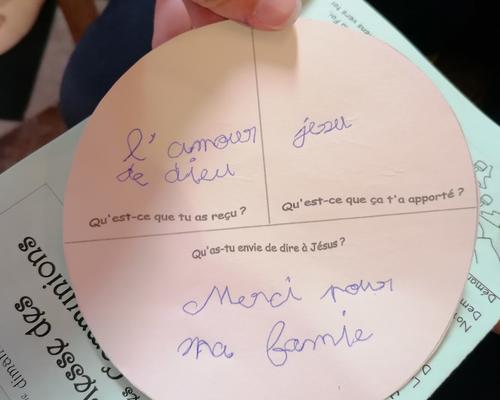 l'amour
de dieu
Qu'est-ce que tu as reçu ?
jesu
Qu'est-ce que ça t'a apporté ?
Qu'as-tu envie de dire à Jésus ?
Merci pour
ma famie
Messe des
Communions
diman